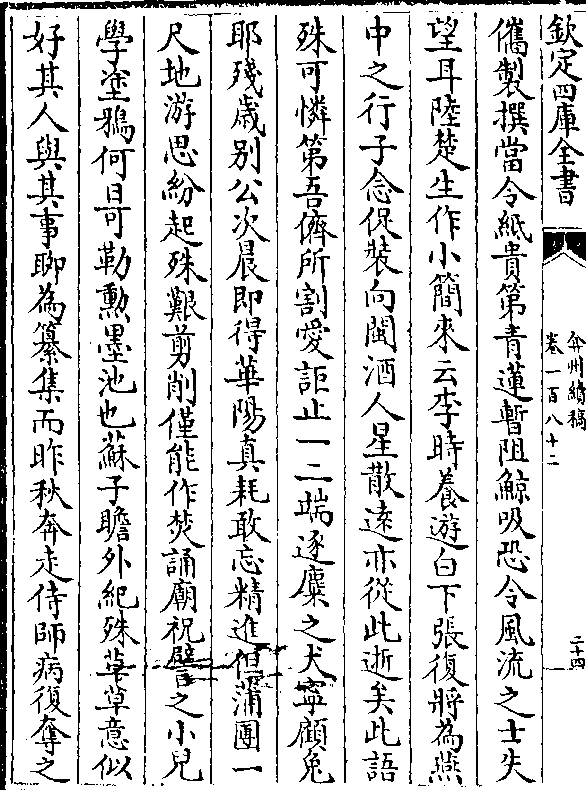 欽定四庫全書
弇州續稿
卷一百八十二
二十四
儁製撰當令紙貴第青蓮暫阻鯨吸恐令風流之士失
望耳陸楚生作小簡來云李時養遊白下張復將為燕
中之行子念促裝向閩酒人星散遠亦從此逝矣此語
殊可憐第吾儕所割愛詎止一二端逐麋之犬寧顧兔
耶殘歲别公次晨即得華陽真耗敢忘精進但蒲團一
尺地游思紛起殊艱剪削僅能作焚誦廟祝譬之小兒
學塗鴉何日可勒勲墨池也蘇子瞻外紀殊草草意似
好其人與其事聊為纂集而昨秋奔走侍師病復奪之